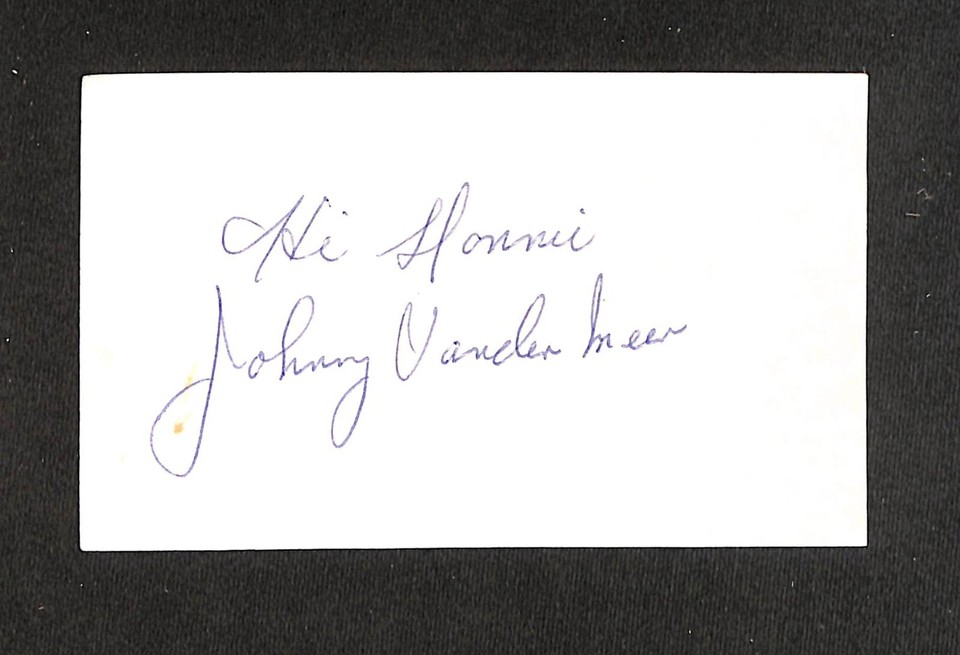 Hi
Johnny Vander Meer